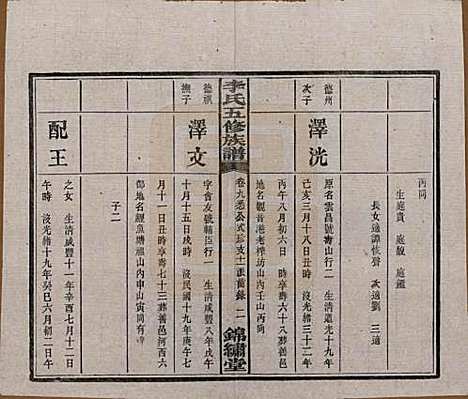 丙向
生庭貴 庭馥 庭鑑
長女適譚枚聲 次適劉 三適
德州
次子
澤洸
原名雲昌號壽山行一 生清道光十九年
己亥三月十八日丑時 沒光緒三十二年
丙午八月初六日 時享壽六十八葬善邑
地名觀音港老榨坊山内壬山丙向
李氏五修族譜
卷九
錦繡堂
德祺
撫子
澤文
字會友號輔臣行一 生清咸豐八年戊午
十月十五日戌時 沒民國十九年庚午七
月十一日丑時享壽七十三葬善邑河西六
都地名鯉魚塘㼈山内申山寅向有碑
子二
配王
之女 生清咸豐十一年辛酉七月十二日
午時 沒光緒十九年癸巳六月初二日午